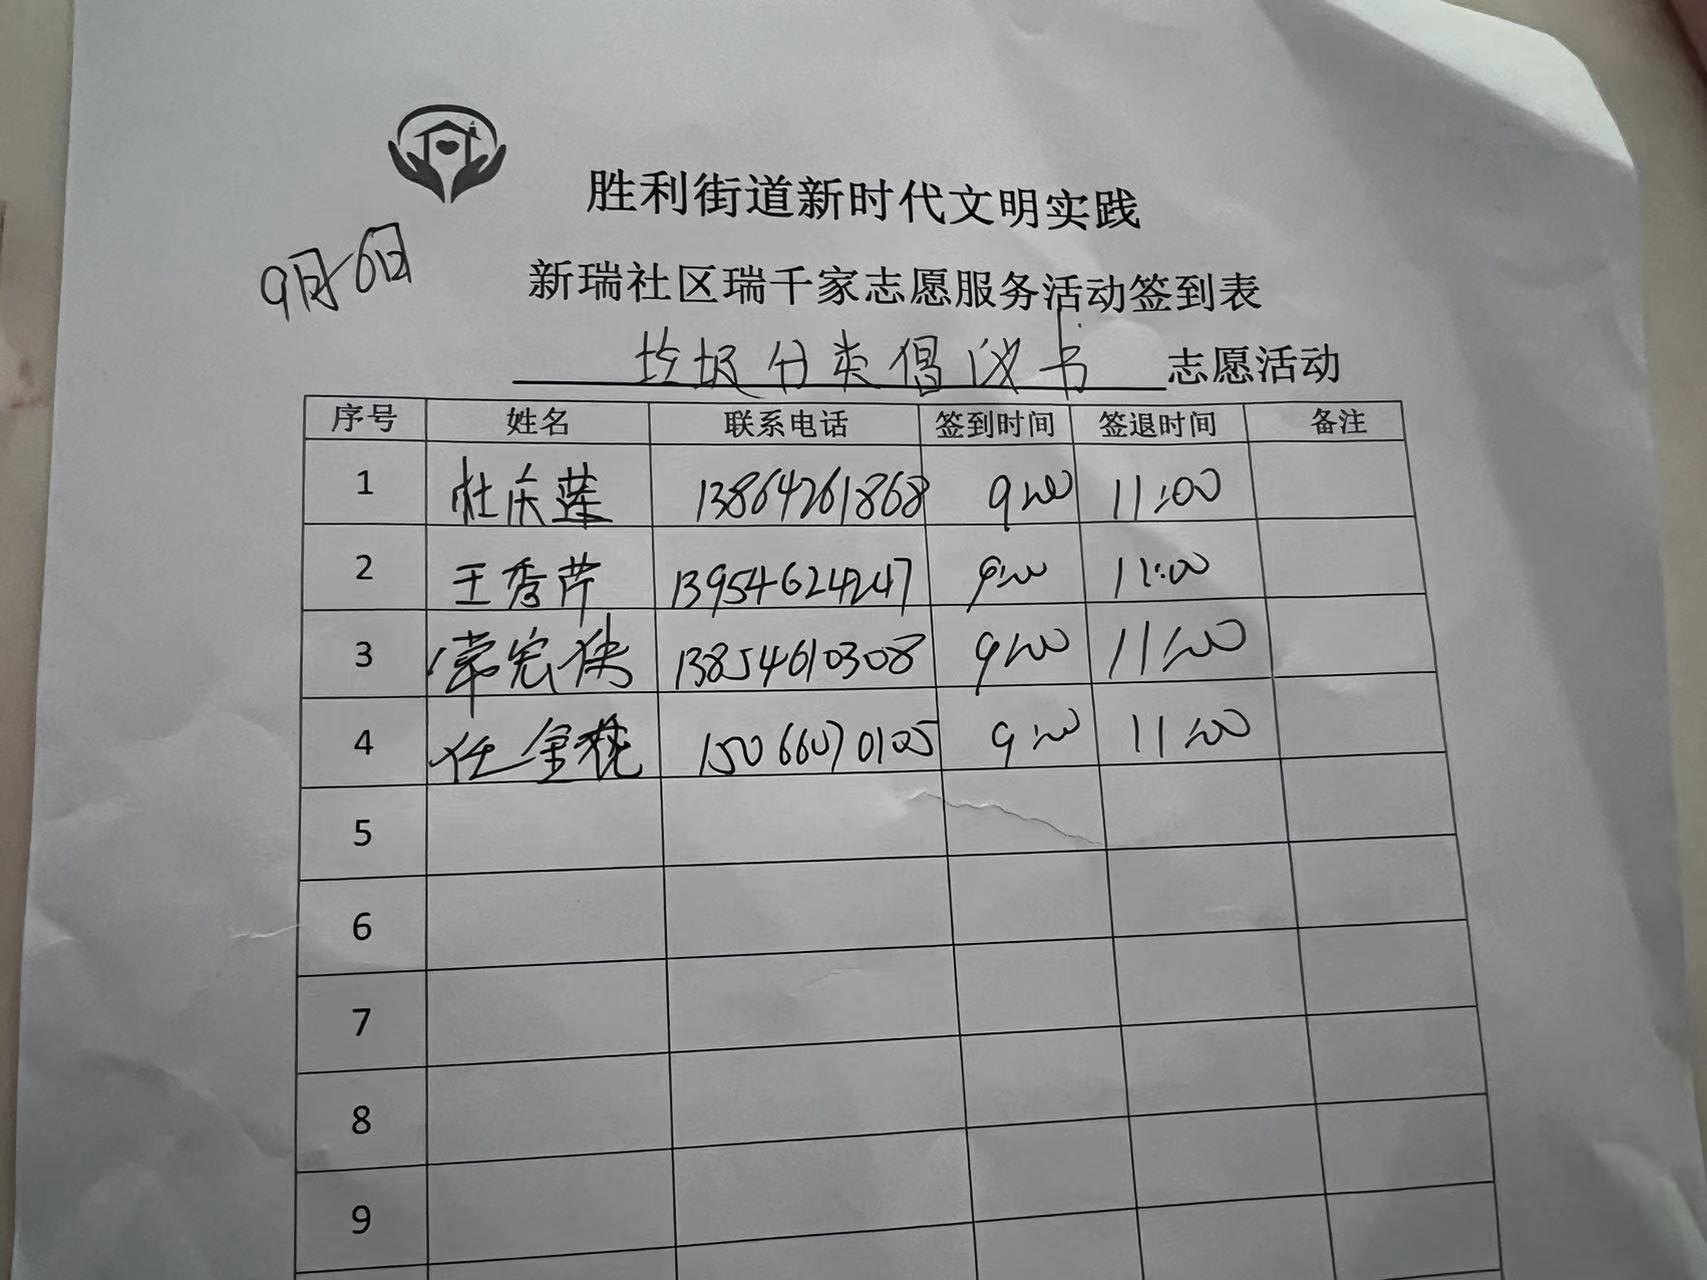 胜利街道新时代文明实践
9月6日
新瑞社区瑞千家志愿服务活动签到表
垃圾分类倡议书 志愿活动
序号 姓名 联系电话 签到时间 签退时间 备注
1 杜庆莲 13864261868 9:00 11:00
2 王秀芹 13954624247 9:00 11:00
3 常宪 13854610308 9:00 11:00
4 任金 15066070105 9:00 11:00
5
6
7
8
9